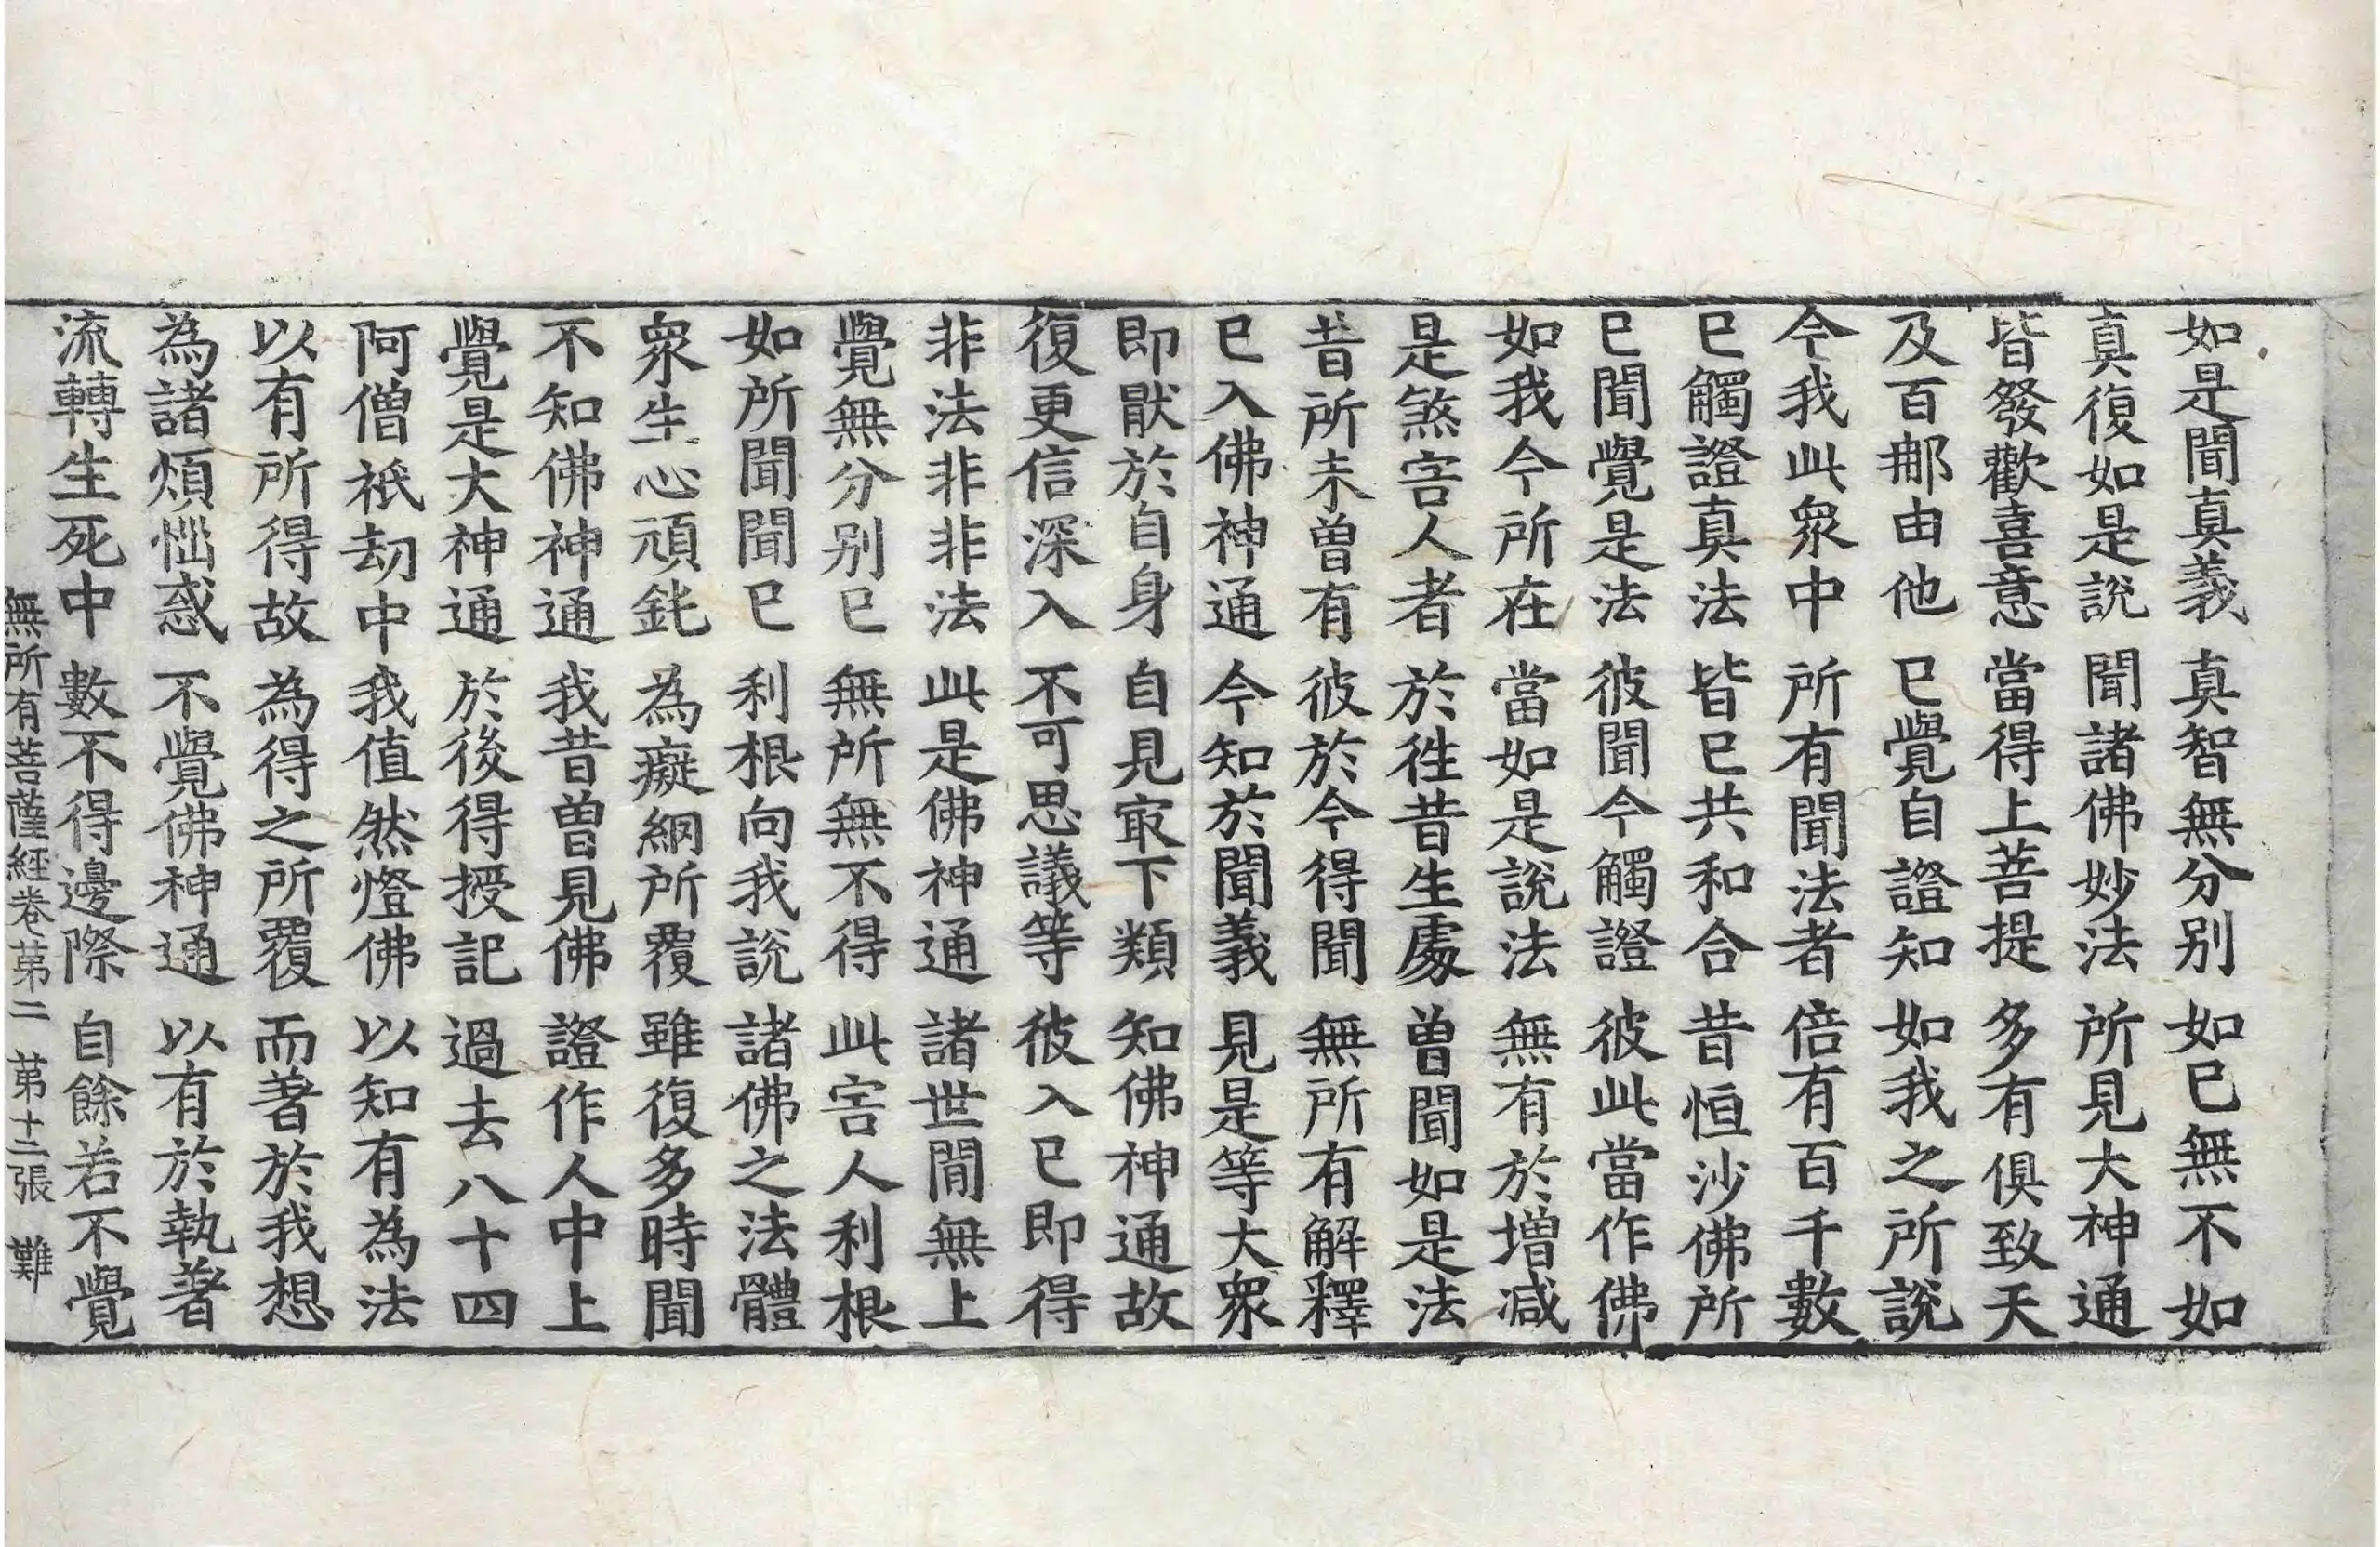 如是聞真義 真智無分別 如已無不如
真復如是說 聞諸佛妙法 所見大神通
皆發歡喜意 當得上菩提 多有俱致天
及百那由他 已覺自證知 如我之所說
今我此衆中 所有聞法者 倍有百千數
已觸證真法 皆已共和合 昔恒沙佛所
已聞覺是法 彼聞今觸證 彼此當作佛
如我今所在 當如是說法 無有於增減
是煞害人者 於徃昔生處 曾聞如是法
昔所未曾有 彼於今得聞 無所有解釋
已入佛神通 今知於聞義 見是等大衆
即猒於自身 自見㝡下類 知佛神通故
復更信深入 不可思議等 彼入已即得
非法非非法 此是佛神通 諸世間無上
覺無分別已 無所無不得 此害人利根
如所聞聞已 利根向我說 諸佛之法體
衆生心頑鈍 為癡網所覆 雖復多時聞
不知佛神通 我昔曾見佛 證作人中上
覺是大神通 於後得授記 過去八十四
阿僧祇劫中 我值然燈佛 以知有為法
以有所得故 為得之所覆 而著於我想
為諸煩惱惑 不覺佛神通 以有於執著
流轉生死中 數不得邊際 自餘若不覺
無所有菩薩經卷第二 第十二張 難